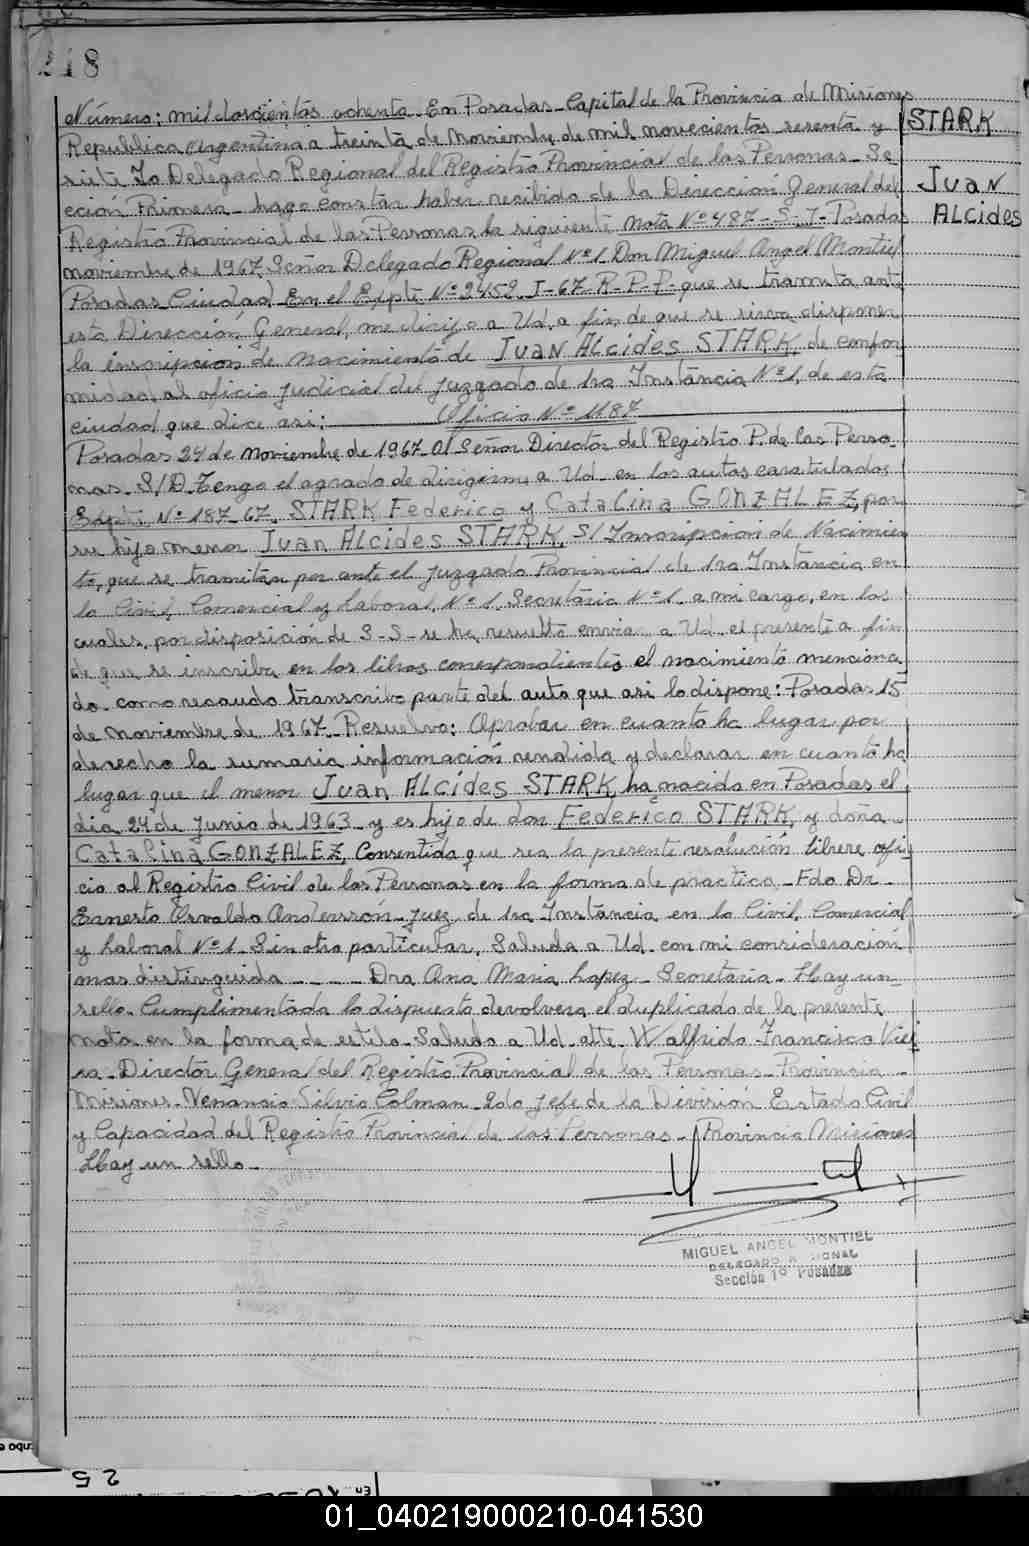 218
Número: mil doscientos ochenta. En Posadas - Capital de la Provincia de Misiones
STARK
Juan
ALcides
Republica Argentina a treinta de Noviembre de mil novecientos sesenta y
siete Yo Delegado Regional del Registro Provincial de las Personas - Se
cción Primera - hago constar haber recibido de la Dirección General del
Registro Provincial de las Personas la siguiente nota Nº 487-S-I- Posadas
noviembre de 1967. Señor Delegado Regional Nº1 Don Miguel Angel Montiel
Posadas Ciudad En el Expte Nº 2452. I-67-R-P-P- que se tramita ante
esta Dirección General, me dirijo a Ud. a fin de que se sirva disponer
la inscripcion de nacimiento de Juan ALcides STARK, de confor
midad al oficio judicial del Juzgado de 1ra Instancia Nº 1, de esta
ciudad que dice asi: Oficio Nº 1187
Posadas 24 de Noviembre de 1967 Al Señor Director del Registro P. de las Perso
nas. S/D. Tengo el agrado de dirigirme a Ud en los autos caratulados
Expte. Nº 187-67. STARK Federico y Catalina GONZALEZ, por
su hijo menor Juan ALcides STARK, S/ Inscripcion de Nacimien
to, que se tramitan por ante el Juzgado Provincial de 1ra Instancia en
lo Civil, Comercial y Laboral, Nº 1. Secretaria Nº 1. a mi cargo, en los
cuales, por disposicion de S-S- se ha resuelto enviar a Ud. el presente a fin
de que se inscriba en los libros correspondientes el nacimiento menciona
do. como recaudo transcribo parte del auto que asi lo dispone: Posadas 15
de noviembre de 1967. Resuelvo: Aprobar en cuanto ha lugar por
derecho la sumaria información rendida y declarar en cuanto ha
lugar que el menor Juan ALCides STARK, ha nacido en Posadas el
dia 24 de Junio de 1963 - y es hijo de don Federico STARK, y doña
Catalina GONZALEZ, Consentida que sea la presente resolución librese ofi
cio al Registro Civil de las Personas en la forma de practica - Fdo Dr.
Ernesto Osvaldo Anderssón - Juez de 1ra Instancia en lo Civil, Comercial
y Laboral Nº 1. Sin otro particular, Saluda a Ud. con mi consideración
mas distinguida ---- Dra Ana Maria Lopez - Secretaria - Hay un
sello. Cumplimentada lo dispuesto devolvera el duplicado de la presente
nota en la forma de estilo. Saludo a Ud. atte. Walfrido Francisco Viei
ra - Director General del Registro Provincial de las Personas - Provincia -
Misiones - Venancio Silvio Colman - 2do Jefe de la División Estado Civil
y Capacidad del Registro Provincial de las Personas - Provincia Misiones
Hay un sello -
MIGUEL ANGEL MONTIEL
DELEGADO REGIONAL
Sección 1º Posadas
25
01_040219000210-041530